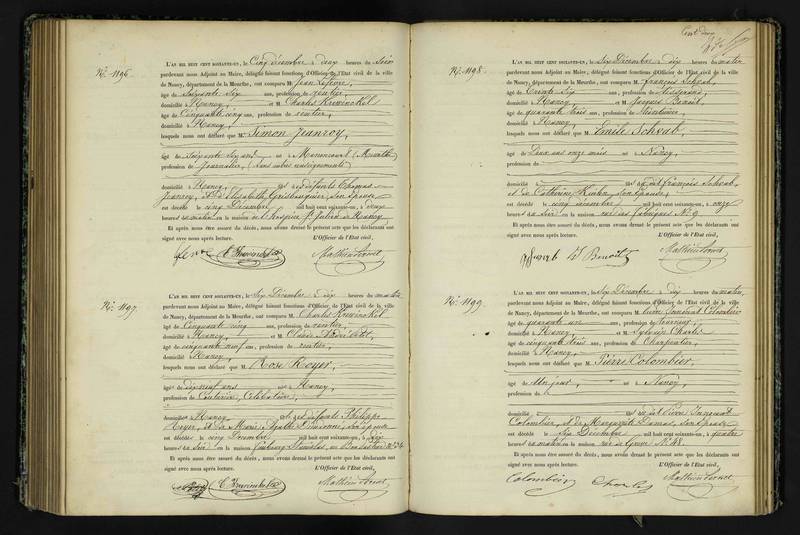 N.º 1196.
L'AN MIL HUIT CENT SOIXANTE-UN, le Cinq Décembre à deux heures du Soir
pardevant nous Adjoint au Maire, délégué faisant fonctions d'Officier de l'Etat civil de la ville
de Nancy, département de la Meurthe, ont comparu M. Jean Lefevre,
âgé de Soixante Six ans, profession de rentier,
domicilié à Nancy, et M. Charles
âgé de Cinquante cinq ans, profession de rentier,
domicilié à Nancy,
lesquels nous ont déclaré que M. Simon Jeanroy,
âgé de Soixante dix ans né à (Meurthe)
profession de Journalier, (Sans autres renseignements)
domicilié à Nancy, défunts Thomas
Jeanroy, et Elisabeth son épouse
est décédé le cinq Décembre mil huit cent soixante-un, à deux
heures du matin en la maison de l'hospice St Julien de Nancy
Et après nous être assuré du décès, nous avons dressé le présent acte que les déclarants ont
signé avec nous après lecture. L'Officier de l'Etat civil,
N.º 1197.
L'AN MIL HUIT CENT SOIXANTE-UN, le Six Décembre à dix heures du matin
pardevant nous Adjoint au Maire, délégué faisant fonctions d'Officier de l'Etat civil de la ville
de Nancy, département de la Meurthe, ont comparu M. Charles
âgé de Cinquante cinq ans, profession de rentier,
domicilié à Nancy et M. Claude
âgé de cinquante neuf ans, profession de rentier,
domicilié à Nancy,
lesquels nous ont déclaré que M. Rose Royer,
âgée de dix neuf ans née à Nancy,
profession de Couturière, Célibataire,
domiciliée à Nancy défunts Philippe
Royer, et de Marie Agathe son épouse
est décédée le cinq Décembre mil huit cent soixante-un, à dix
heures du Soir en la maison faubourg Stanislas,
Et après nous être assuré du décès, nous avons dressé le présent acte que les déclarants ont
signé avec nous après lecture. L'Officier de l'Etat civil,
Cent deux
N.º 1198.
L'AN MIL HUIT CENT SOIXANTE-UN, le Six Décembre à dix heures du matin
pardevant nous Adjoint au Maire, délégué faisant fonctions d'Officier de l'Etat civil de la ville
de Nancy, département de la Meurthe, ont comparu M. François Schvab,
âgé de Trente Six ans, profession de Tisserand,
domicilié à Nancy et M. Jacques Benoit,
âgé de quarante trois ans, profession de
domicilié à Nancy,
lesquels nous ont déclaré que M. Emile Schvab,
âgé de Deux ans onze mois né à Nancy,
profession de
domicilié à François Schvab,
et de Catherine son épouse,
est décédé le cinq décembre mil huit cent soixante-un, à onze
heures du Soir en la maison rue des fabriques N.º 9
Et après nous être assuré du décès, nous avons dressé le présent acte que les déclarants ont
signé avec nous après lecture. L'Officier de l'Etat civil,
Schvab Benoit
N.º 1199.
L'AN MIL HUIT CENT SOIXANTE-UN, le Six Décembre à dix heures du matin,
pardevant nous Adjoint au Maire, délégué faisant fonctions d'Officier de l'Etat civil de la ville
de Nancy, département de la Meurthe, ont comparu M. Pierre Colombier
âgé de quarante un ans, profession de Tourneur,
domicilié à Nancy, et M. Sylvain Charles
âgé de cinquante trois ans, profession de Charpentier,
domicilié à Nancy,
lesquels nous ont déclaré que M. Pierre Colombier,
âgé de Un jour, né à Nancy,
profession de
domicilié à Pierre
Colombier, et de Marguerite son épouse
est décédé le Six Décembre mil huit cent soixante-un, à quatre
heures du matin en la maison N.º 48.
Et après nous être assuré du décès, nous avons dressé le présent acte que les déclarants ont
signé avec nous après lecture. L'Officier de l'Etat civil,
Colombier Charles